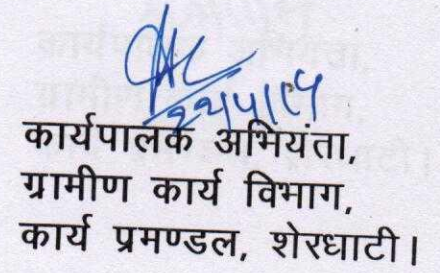 कार्यपालक अभियंता,
ग्रामीण कार्य विभाग,
कार्य प्रमण्डल, शेरघाटी।